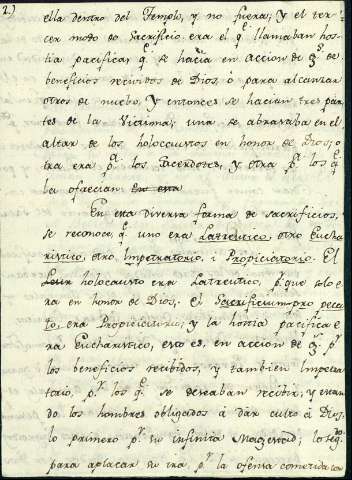 2.)
ella dentro del Templo, y no fuera; y el ter-
cer modo de Sacrificio era el q.e llamaban hos-
tia pacifica; q.e se hacia en accion de g.s de
beneficios recividos de Dios, ò para alcanzar
otros de nuebo, y entonces se hacian tres par-
tes de la Victima; una se abrasaba en el
altar de los holocaustos en honor de Dios; o
tra era p.a los Sacerdotes, y otra p.a los q.e
la ofrecian.
En esta diversa forma de sacrificios,
se reconoce q.e uno era Latreutico, otro Eucha
ristico, otro Impetratorio, i Propiciatorio. El
holocausto era Latreutico, p.r que solo e
ra en honor de Dios; El Sacrificium pro pecca
to, era Propiciatorio; y la hostia pacifica e
ra Eucharistico, esto es, en accion de g.s p.r
los beneficios recibidos, y tambien Impetra
torio, p.r los q.e se deseaban recibir, y estan
do los hombres obligados à dàr culto à Dios,
lo primero p.r su infinita Magestad; lo seg.do
para aplacar su ira p.r la ofensa cometida con